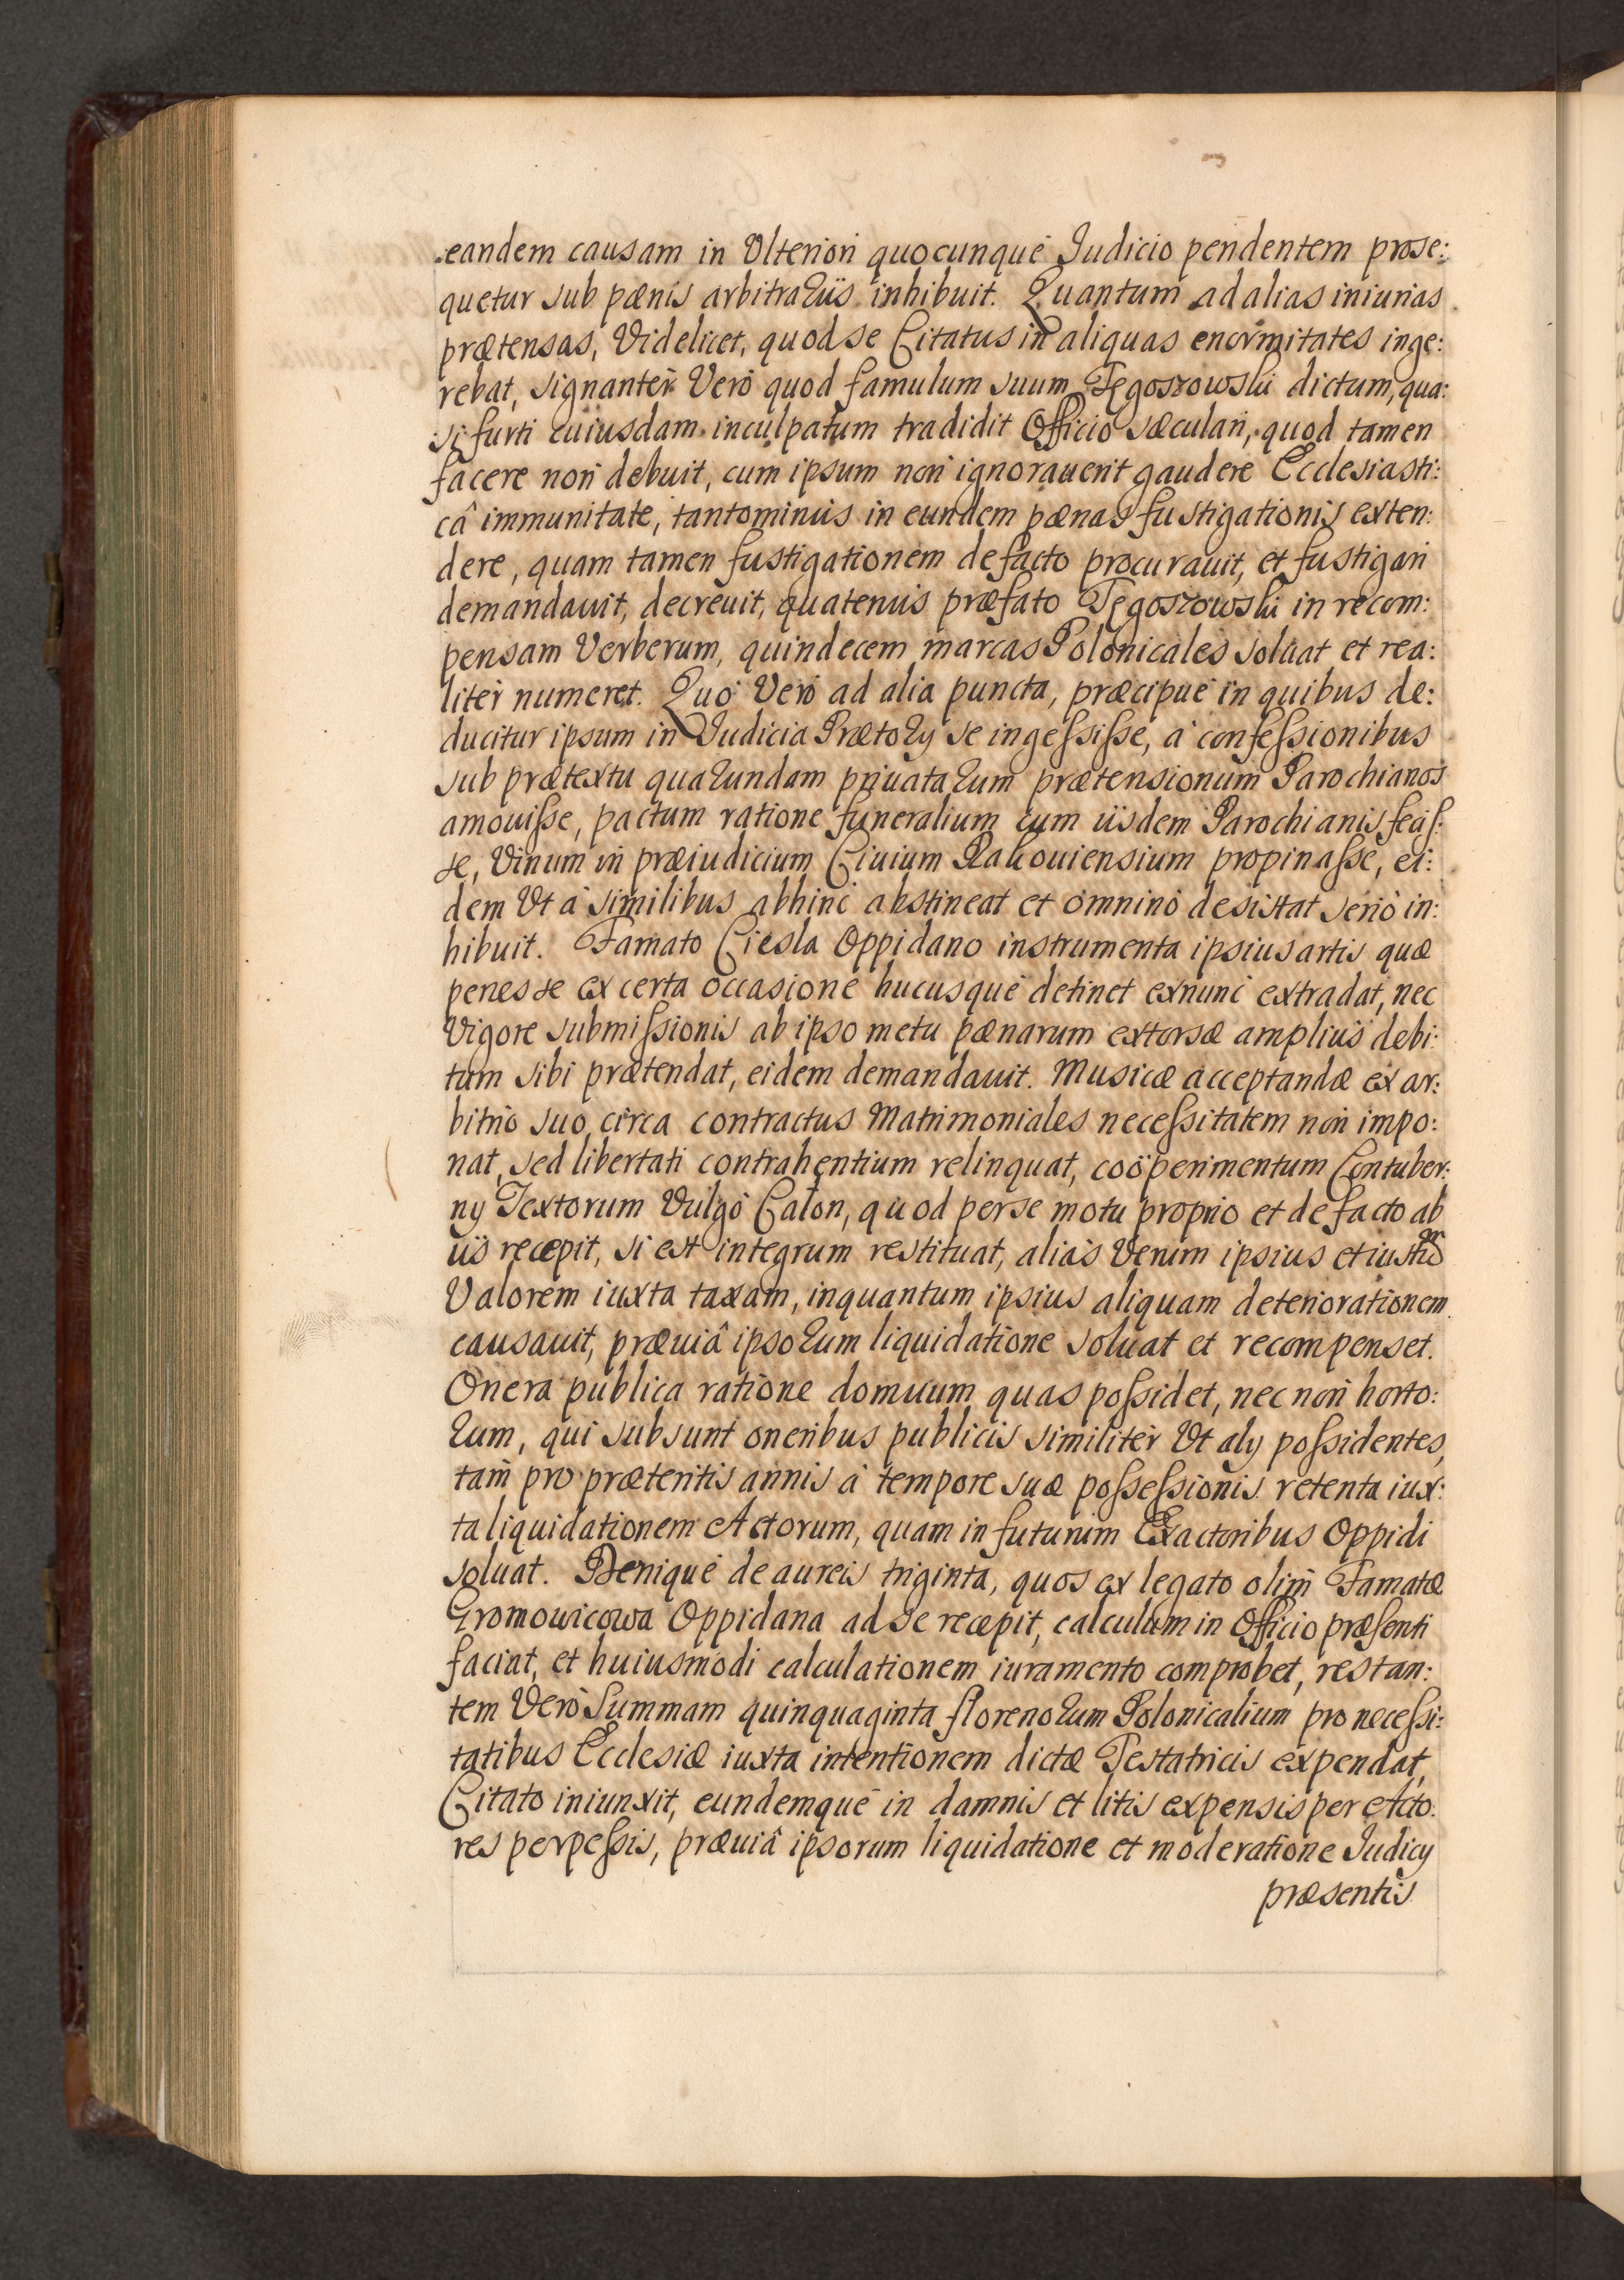 eandem causam in Ulteriori quocunque Judicio pendentem prose:
quetur sub pænis arbitrarÿs inhibuit. Quantum ad alias iniurias
prætensas, Videlicet, quod se Citatus in aliquas enormitates inge:
rebat, signanter Verò quod famulum suum Tęgoszowski dictum, qua:
si furti cuiusdam inculpatum tradidit Officio sæculari, quod tamen
facere non debuit, cum ipsum non ignorauerit gaudere Ecclesiasti:
câ immunitate, tantominus in eundem pænas fustigationis exten:
dere, quam tamen fustigationem de facto procurauit, et fustigari
demandauit, decreuit, quatenus præfato Tęgoszowski in recom:
pensam Verberum, quindecem marcas Polonicales soluat et rea:
liter numeret. Quò Verò ad alia puncta, præcipuè in quibus de:
ducitur ipsum in Judicia Prætorÿ se ingeſsiſse, à confeſsionibus
sub prætextu quarundam priuatarum prætensionum Parochianos
amouiſse, pactum ratione funeralium cum iisdem Parochianis feciſ:
se, Vinum in præiudicium Ciuium Rakouiensium propinaſse, ei:
dem Ut à similibus abhinc abstineat et omninò desistat seriò in:
hibuit. Famato Cieśla Oppidano instrumenta ipsius artis quæ
penes se ex certa occasione hucusque detinet exnunc extradat, nec
Vigore submiſsionis ab ipso metu pænarum extorsæ amplius debi:
tum sibi prætendat, eidem demandauit. Musicæ acceptandæ ex ar:
bitrio suo circa contractus Matrimoniales neceſsitatem non impo:
nat, sed libertati contrahentium relinquat, coöperimentum Contuber:
nÿ Textorum Vulgò Całon, quod per se motu proprio et de facto ab
iis recæpit, si est integrum restituat, aliàs Verum ipsius et iustũ
Valorem iuxta taxam, inquantum ipsius aliquam deteriorationem
causauit, præuiâ ipsorum liquidatione soluat et recompenset.
Onera publica ratione domuum quas poſsidet, nec non horto:
rum, qui subsunt oneribus publicis similiter Ut alÿ poſsidentes,
tam pro præteritis annis à tempore suæ poſseſsionis retenta iux:
ta liquidationem Actorum, quam in futurum Exactoribus Oppidi
soluat. Denique de aureis triginta, quos ex legato olim Famatæ
Gromowicowa Oppidana ad se recæpit, calculum in Officio præsenti
faciat, et huiusmodi calculationem iuramento comprobet, restan:
tem Verò Summam quinquaginta florenorum Polonicalium pro neceſsi:
tatibus Ecclesiæ iuxta intentionem dictæ Testatricis expendat,
Citato iniunxit, eundemque in damnis et litis expensis per Acto:
res perpeſsis, præuiâ ipsorum liquidatione et moderatione Judicÿ
præsentis